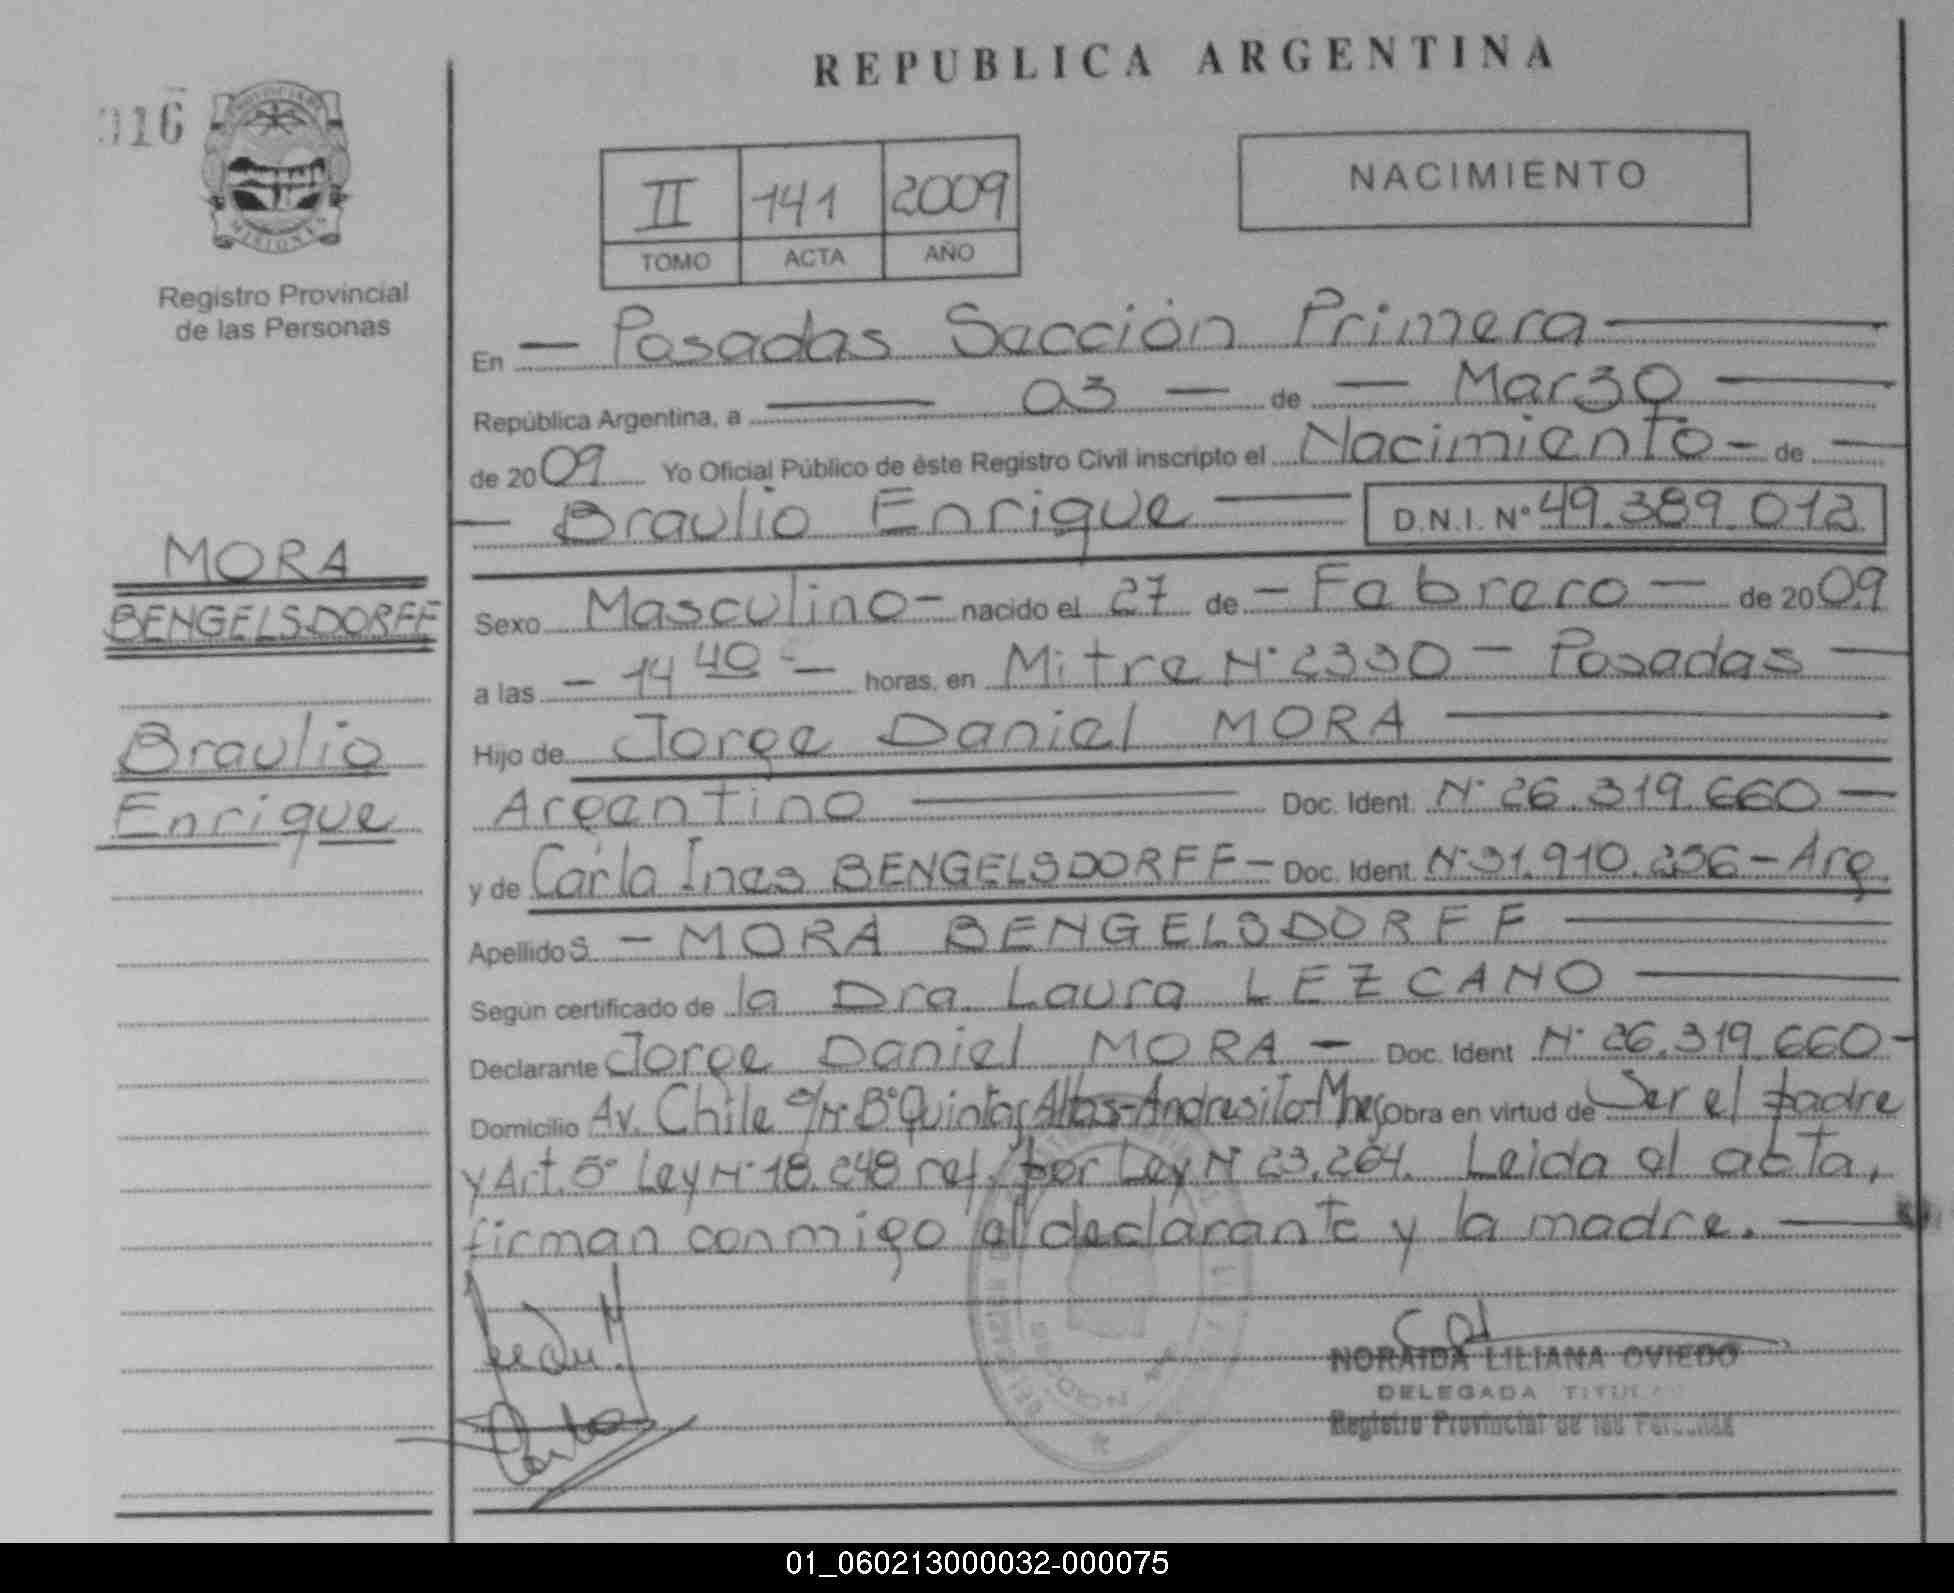 REPUBLICA ARGENTINA
016
MISIONES
Registro Provincial
de las Personas
II 141 2009
TOMO ACTA AÑO
NACIMIENTO
En — Posadas Sección Primera —
República Argentina, a — 03 — de — Marzo —
de 2009 Yo Oficial Público de éste Registro Civil inscripto el Nacimiento - de —
— Braulio Enrique — D.N.I. Nº 49.389.012
MORA
BENGELSDORFF
Braulio
Enrique
Sexo Masculino - nacido el 27 de - Febrero - de 2009
a las - 14 40 - horas, en Mitre Nº 2330 - Posadas —
Hijo de Jorge Daniel MORA —
Argentino — Doc. Ident. Nº 26.319.660 —
y de Carla Ines BENGELSDORFF - Doc. Ident. Nº 31.910.236 - Arg.
Apellidos - MORA BENGELSDORFF —
Según certificado de la Dra. Laura LEZCANO —
Declarante Jorge Daniel MORA - Doc. Ident Nº 26.319.660 -
Domicilio Av. Chile s/Nº Bº Quintas Altas-Andresito-Mnes Obra en virtud de Ser el padre
y Art. 5º Ley Nº 18.248 ref. por Ley Nº 23.264. Leida el acta,
firman conmigo el declarante y la madre. —
NORAIDA LILIANA OVIEDO
DELEGADA TITULAR
Registro Provincial de las Personas
01_060213000032-000075